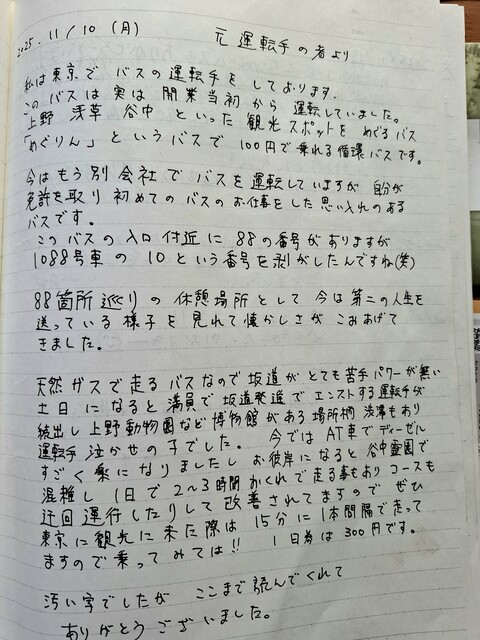 2025.11/10 (月)
元 運転手の者より
私は東京でバスの運転手をしております。
このバスは実は開業当初から運転していました。
上野 浅草 谷中 といった観光スポットをめぐるバス
「めぐりん」というバスで 100円で乗れる循環バスです。
今はもう別会社でバスを運転していますが 自分が
免許を取り初めてのバスのお仕事をした思い入れのある
バスです。
このバスの入口付近に88の番号がありますが
1088号車の10という番号を剥がしたんですね(笑)
88箇所巡りの休憩場所として今は第二の人生を
送っている様子を見れて懐かしさがこみあげて
きました。
天然ガスで走るバスなので坂道がとても苦手パワーが無い
土日になると満員で坂道発進でエンストする運転手が
続出し上野動物園など博物館がある場所柄 渋滞もあり
運転手泣かせの子でした。 今ではAT車でディーゼル
すごく楽になりましたし お彼岸になると谷中霊園で
混雑し1日で2〜3時間おくれで走る事もあり コースも
迂回運行したりして改善されてますので ぜひ
東京に観光に来た際は 15分に1本間隔で走って
ますので乗ってみては!! 1日券は300円です。
汚い字でしたが ここまで読んでくれて
ありがとうございました。